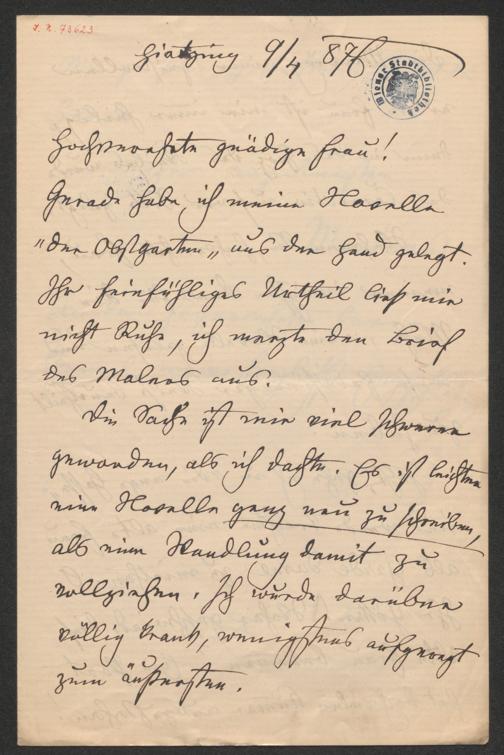 I. N. 73623
Hietzing 9/4 876
Wiener Stadtbibliothek
Hochverehrte gnädige Frau!
Gerade habe ich meine Novelle
"der Obstgarten„ aus der Hand gelegt.
Ihr feinfühliges Urtheil ließ mir
nicht Ruhe, ich merzte den Brief
des Malers aus.
Die Sache ist mir viel schwerer
geworden, als ich dachte. Es ist leichter
eine Novelle ganz neu zu schreiben,
als eine Wandlung damit zu
vollziehen. Ich wurde darüber
völlig krank, wenigstens aufgeregt
zum äußersten.